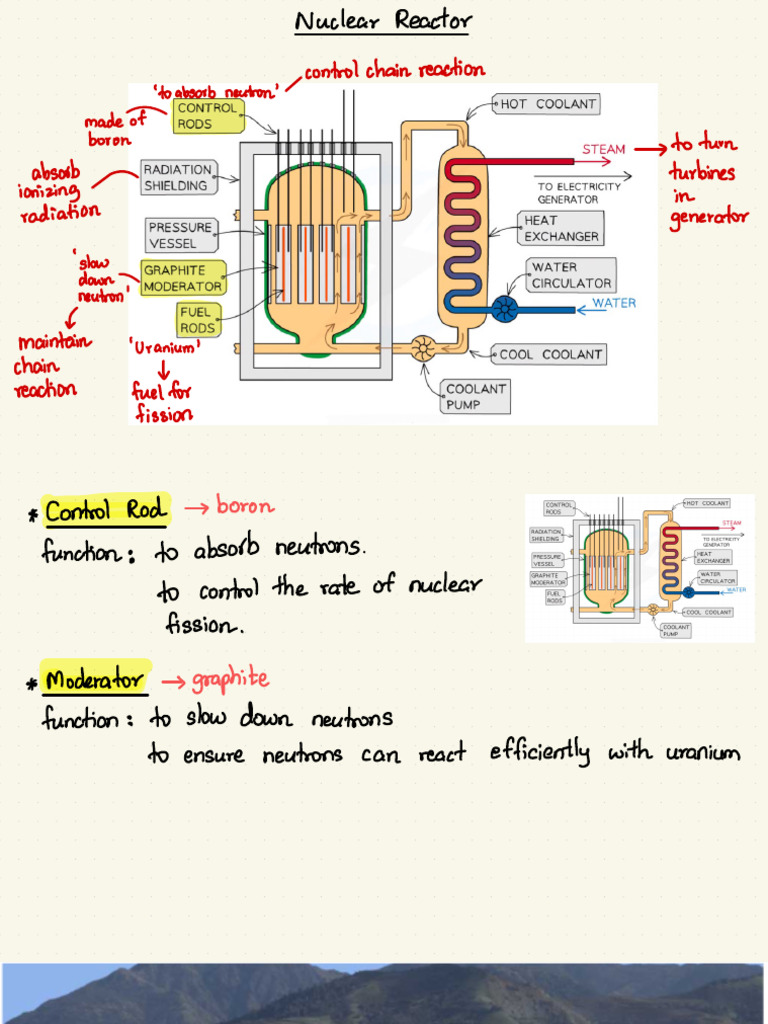 Nuclear Reactor
control chain reaction
'to absorb neutron'
made of
boron
CONTROL
RODS
HOT COOLANT
absorb
ionizing
radiation
RADIATION
SHIELDING
STEAM
to turn
turbines
in
generator
TO ELECTRICITY
GENERATOR
PRESSURE
VESSEL
HEAT
EXCHANGER
'slow
down
neutron'
GRAPHITE
MODERATOR
WATER
CIRCULATOR
WATER
FUEL
RODS
maintain
chain
reaction
'Uranium'
fuel for
fission
COOL COOLANT
COOLANT
PUMP
* Control Rod → boron
function: to absorb neutrons.
to control the rate of nuclear
fission.
CONTROL
RODS
HOT COOLANT
RADIATION
SHIELDING
STEAM
TO ELECTRICITY
GENERATOR
PRESSURE
VESSEL
HEAT
EXCHANGER
GRAPHITE
MODERATOR
WATER
CIRCULATOR
WATER
FUEL
RODS
COOL COOLANT
COOLANT
PUMP
* Moderator → graphite
function: to slow down neutrons
to ensure neutrons can react efficiently with uranium